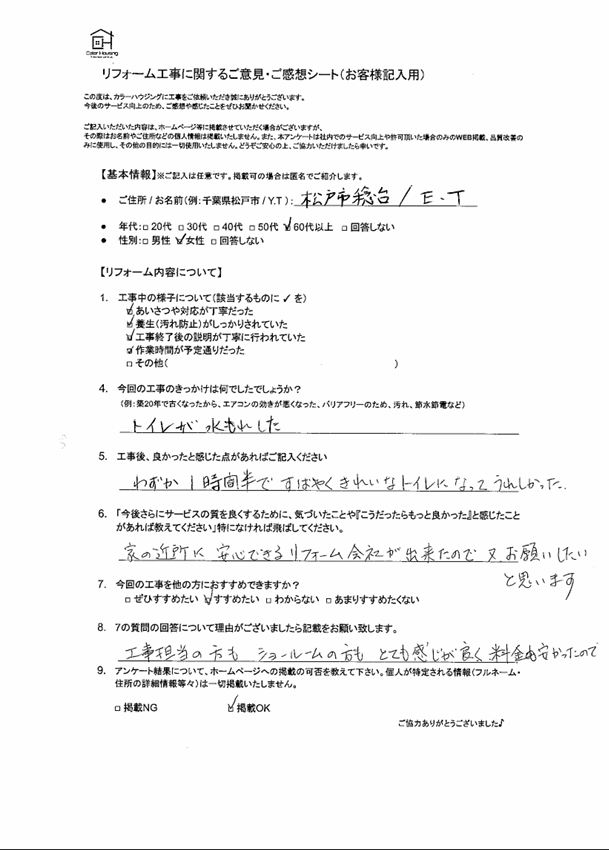 Color Housing
リフォーム工事に関するご意見・ご感想シート(お客様記入用)
この度は、カラーハウジングに工事をご依頼いただき誠にありがとうございます。
今後のサービス向上のため、ご感想や感じたことをぜひお聞かせください。
ご記入いただいた内容は、ホームページ等に掲載させていただく場合がございますが、
その際はお名前やご住所などの個人情報は掲載いたしません。また、本アンケートは社内でのサービス向上や許可頂いた場合のみのWEB掲載、品質改善の
みに使用し、その他の目的には一切使用いたしません。どうぞご安心の上、ご協力いただけましたら幸いです。
【基本情報】※ご記入は任意です。掲載可の場合は匿名でご紹介します。
● ご住所 / お名前(例:千葉県松戸市 / Y.T ): 松戸市稔台 / E.T
● 年代:□ 20代 □ 30代 □ 40代 □ 50代 ☑ 60代以上 □ 回答しない
● 性別:□ 男性 ☑ 女性 □ 回答しない
【リフォーム内容について】
1. 工事中の様子について(該当するものに ✓ を)
☑ あいさつや対応が丁寧だった
☑ 養生(汚れ防止)がしっかりされていた
☑ 工事終了後の説明が丁寧に行われていた
☑ 作業時間が予定通りだった
□ その他( )
4. 今回の工事のきっかけは何でしたでしょうか?
(例:築20年で古くなったから、エアコンの効きが悪くなった、バリアフリーのため、汚れ、節水節電など)
トイレが水もれした
5. 工事後、良かったと感じた点があればご記入ください
わずか1時間半ですばやくきれいなトイレになってうれしかった.
6. 「今後さらにサービスの質を良くするために、気づいたことや『こうだったらもっと良かった』と感じたこと
があれば教えてください」特になければ飛ばしてください。
家の近所に安心できるリフォーム会社が出来たので又お願いしたい
と思います
7. 今回の工事を他の方におすすめできますか?
□ ぜひすすめたい ☑ すすめたい □ わからない □ あまりすすめたくない
8. 7の質問の回答について理由がございましたら記載をお願い致します。
工事担当の方もショールームの方もとても感じが良く料金も安かったので
9. アンケート結果について、ホームページへの掲載の可否を教えて下さい。個人が特定される情報(フルネーム・
住所の詳細情報等々)は一切掲載いたしません。
□ 掲載NG ☑ 掲載OK
ご協力ありがとうございました♪